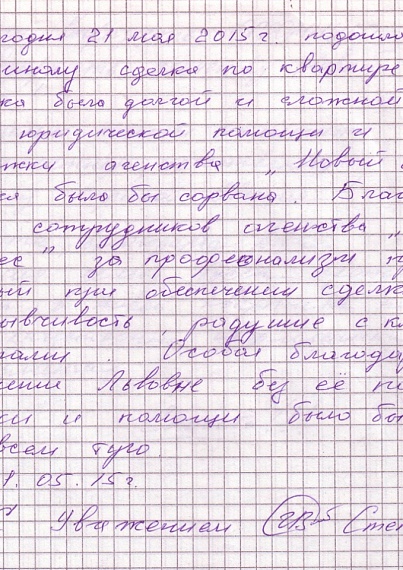 годня 21 мая 2015г. подошла
иналу сделка по квартире
ка была долгой и сложной
юридической помощи и
жки агенства „Новый
ка была бы сорвана. Благ
сотрудников агенства „
ес" за профеонализм пр
ый при обеспечении сделк
ывчивость, радушие с кл
тами. Особая благодар
ении Львовне без её по
ки и помощи было бы
всем туго.
1.05.15г.
Уважением Сте